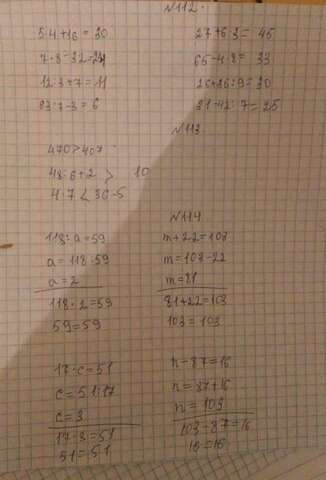 №112.
5·4+16=30
7·8-32=24
12:3+7=11
63:7-3=6
27+6·3=45
65-4·8=33
26+36:9=30
31-42:7=25
№113
470>407
48:6+2 > 10
4·7<36-5
№114
118:a=59
a=118:59
a=2
118:2=59
59=59
m+22=103
m=103-22
m=81
81+22=103
103=103
17·c=51
c=51:17
c=3
17·3=51
51=51
n-87=16
n=87+16
n=103
103-87=16
16=16